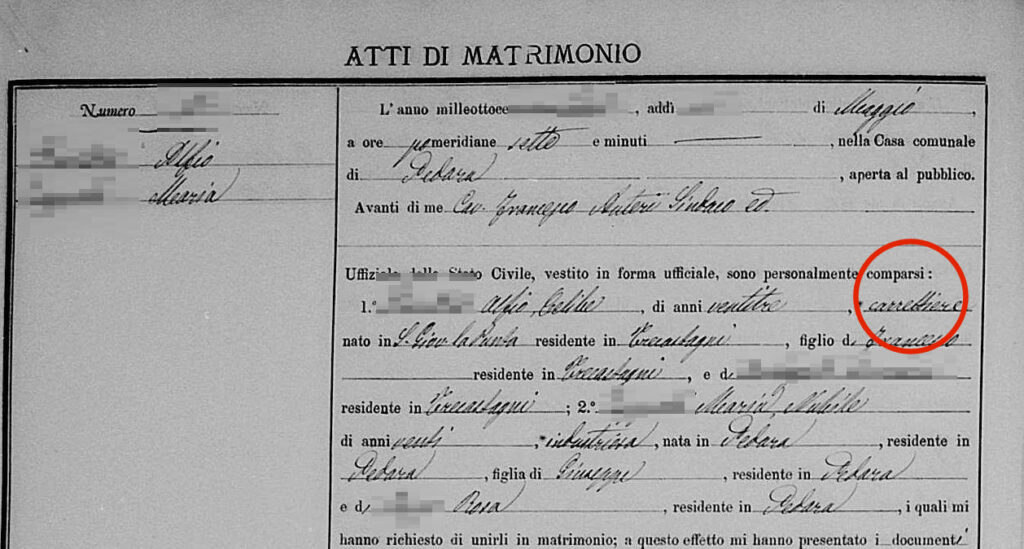 ATTI DI MATRIMONIO
Numero
Alfio
Maria
L'anno milleottoce , addì di Maggio,
a ore pomeridiane sette e minuti , nella Casa comunale
di Pedara , aperta al pubblico.
Avanti di me Cav. Francesco Auteri Sindaco ed.
Uffiziale dello Stato Civile, vestito in forma ufficiale, sono personalmente comparsi:
1.° Alfio, Celibe , di anni ventitre , carrettiere
nato in S. Giov. la Punta residente in Trecastagni , figlio di Francesco
residente in Trecastagni , e di
residente in Trecastagni ; 2.° Maria, Nubile
di anni venti , industriosa , nata in Pedara , residente in
Pedara , figlia di Giuseppe , residente in Pedara
e di Rosa , residente in Pedara , i quali mi
hanno richiesto di unirli in matrimonio; a questo effetto mi hanno presentato i documenti